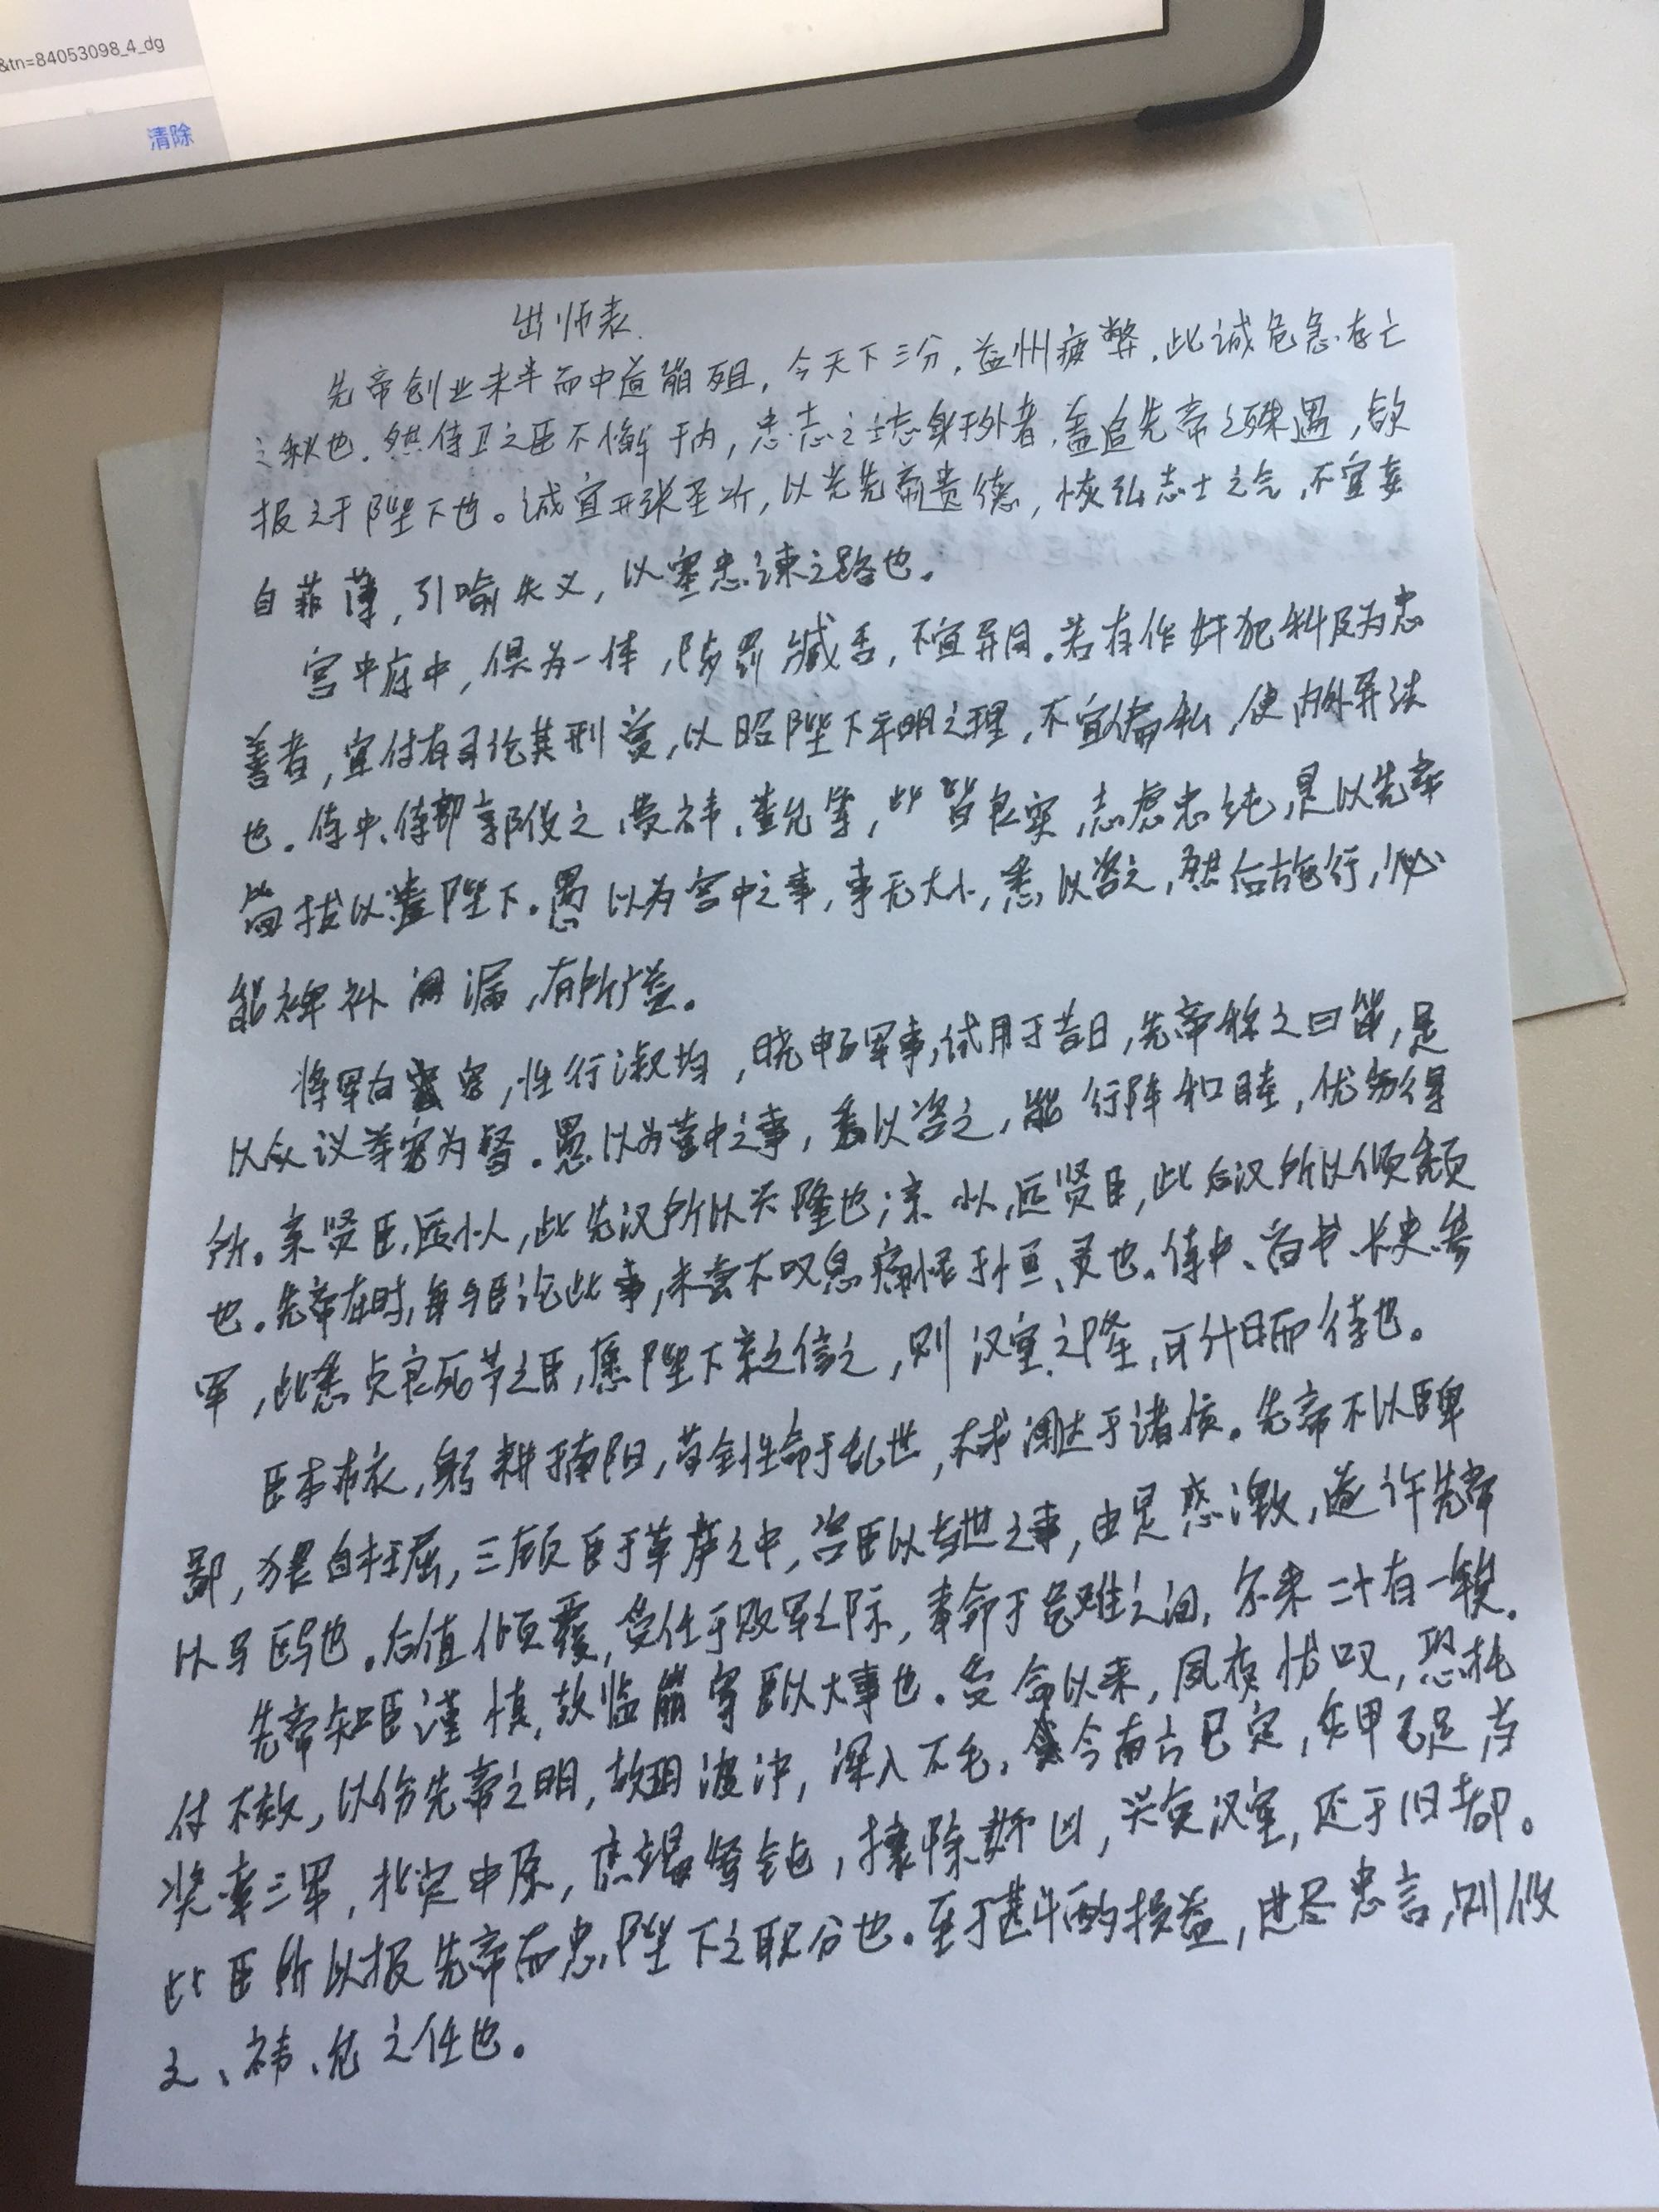 &tn=84053098_4_dg
清除
出师表
先帝创业未半而中道崩殂，今天下三分，益州疲弊，此诚危急存亡
之秋也。然侍卫之臣不懈于内，忠志之士忘身于外者，盖追先帝之殊遇，欲
报之于陛下也。诚宜开张圣听，以光先帝遗德，恢弘志士之气，不宜妄
自菲薄，引喻失义，以塞忠谏之路也。
宫中府中，俱为一体，陟罚臧否，不宜异同。若有作奸犯科及为忠
善者，宜付有司论其刑赏，以昭陛下平明之理，不宜偏私，使内外异法
也。侍中、侍郎郭攸之、费祎、董允等，此皆良实，志虑忠纯，是以先帝
简拔以遗陛下。愚以为宫中之事，事无大小，悉以咨之，然后施行，必
能裨补阙漏，有所广益。
将军向宠，性行淑均，晓畅军事，试用于昔日，先帝称之曰能，是
以众议举宠为督。愚以为营中之事，悉以咨之，能行阵和睦，优劣得
所。亲贤臣，远小人，此先汉所以兴隆也；亲小人，远贤臣，此后汉所以倾颓
也。先帝在时，每与臣论此事，未尝不叹息痛恨于桓、灵也。侍中、尚书、长史、参
军，此悉贞良死节之臣，愿陛下亲之信之，则汉室之隆，可计日而待也。
臣本布衣，躬耕于南阳，苟全性命于乱世，不求闻达于诸侯。先帝不以臣卑
鄙，猥自枉屈，三顾臣于草庐之中，咨臣以当世之事，由是感激，遂许先帝
以驱也。后值倾覆，受任于败军之际，奉命于危难之间，尔来二十有一年矣。
先帝知臣谨慎，故临崩寄臣以大事也。受命以来，夙夜忧叹，恐托
付不效，以伤先帝之明，故五月渡泸，深入不毛。今南方已定，兵甲已足，当
奖率三军，北定中原，庶竭驽钝，攘除奸凶，兴复汉室，还于旧都。
此臣所以报先帝而忠陛下之职分也。至于斟酌损益，进尽忠言，则攸
之、祎、允之任也。